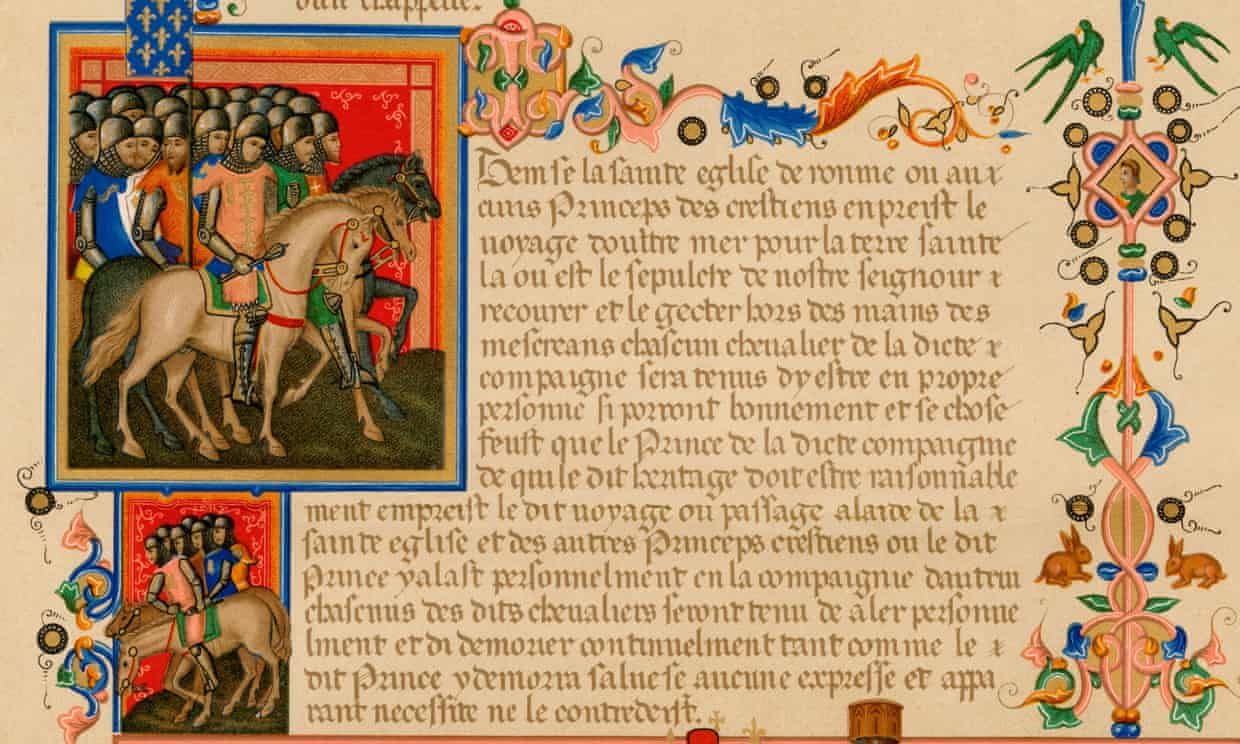 ou le chappelle.
Item se la sainte eglise de romme ou aux
cuns Princeps des crestiens enpreist le
uoyage doultre mer pour la terre sainte
la ou est le sepulcre de nostre seignour &
recourer et le gecter hors des mains des
mescreans chascun chevalier de la dicte &
compaignie sera tenus dy estre en propre
personne si porront bonnement et se chose
feust que le Prince de la dicte compaignie
de qui le dit heritage doit estre raisonnable
ment empreist le dit uoyage ou passage a laide de la &
sainte eglise et des autres Princeps crestiens ou le dit
Prince y alast personnelment en la compaignie dautrui
chascuns des dits chevaliers seront tenu de aler personne
lment et di demorer continuelment tant comme le &
dit Prince y demorra saluese aucune expresse et appa
rant necessite ne le contredeist.